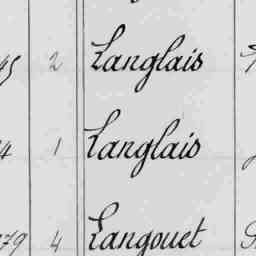 45 2 Langlais
4 1 Langlais
279 4 Langouet